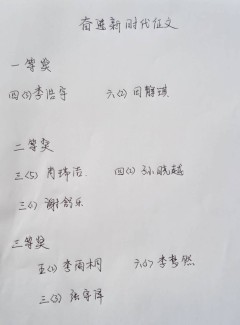 奋进新时代征文
一等奖
四(3)李浩宇 六(2)周静琪
二等奖
三(5)肖玮浩 四(1)孙晓越
三(1)谢舒乐
三等奖
五(1)李雨桐 六(1)李梦然
三(3)张宇泽